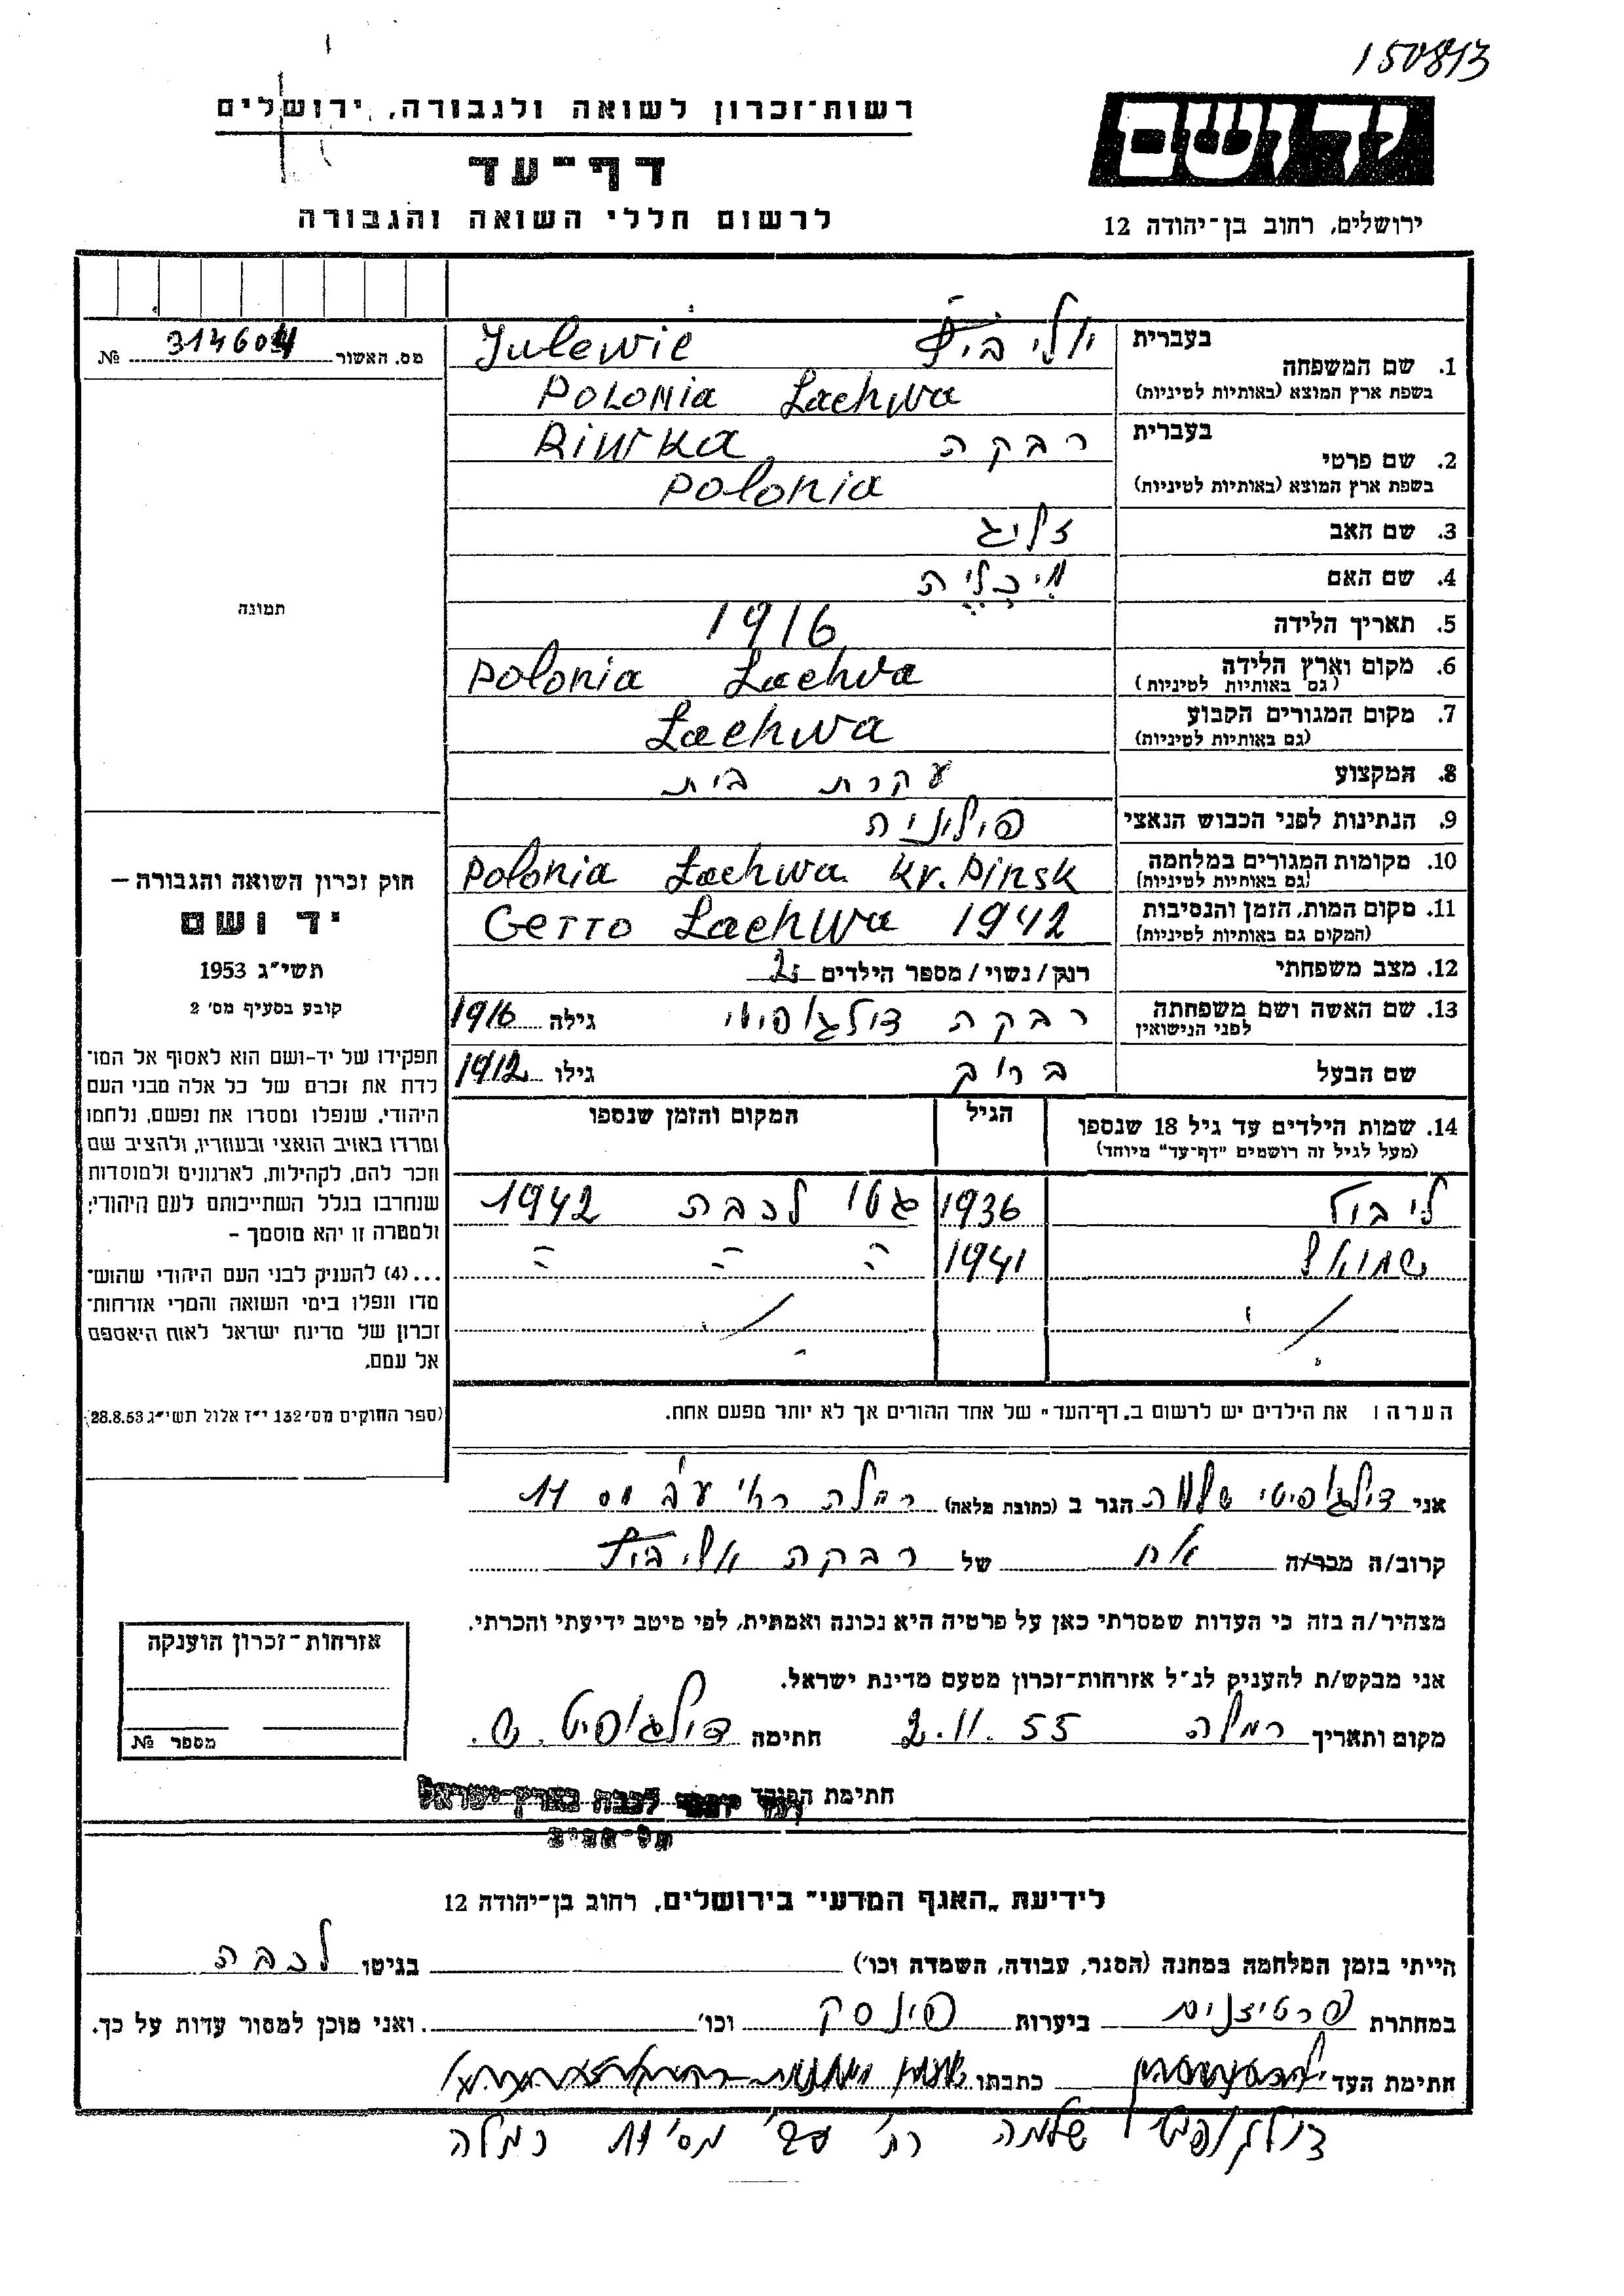 150813
רשות־זכרון לשואה ולגבורה, ירושלים
דף־עד
לרשום חללי השואה והגבורה
יד ושם
ירושלים, רחוב בן־יהודה 12
מס. האשור 314604 №
תמונה
חוק זכרון השואה והגבורה —
יד ושם
תשי״ג 1953
קובע בסעיף מס׳ 2
תפקידו של יד-ושם הוא לאסוף אל המו־
לדת את זכרם של כל אלה מבני העם
היהודי, שנפלו ומסרו את נפשם, נלחמו
ומרדו באויב הנאצי ובעוזריו, ולהציב שם
וזכר להם, לקהילות, לארגונים ולמוסדות
שנחרבו בגלל השתייכותם לעם היהודי;
ולמטרה זו יהא מוסמך –
...(4) להעניק לבני העם היהודי שהוש־
מדו ונפלו בימי השואה והמרי אזרחות־
זכרון של מדינת ישראל לאות היאספם
אל עמם.
(ספר החוקים מס׳ 132 י״ז אלול תשי״ג 28.8.53)
1. שם המשפחה בעברית יולי ביץ Julewic
בשפת ארץ המוצא (באותיות לטיניות) Polonia Lachwa
2. שם פרטי בעברית רבקה Riwka
בשפת ארץ המוצא (באותיות לטיניות) Polonia
3. שם האב זליג
4. שם האם
5. תאריך הלידה 1916
6. מקום וארץ הלידה (גם באותיות לטיניות) Polonia Lachwa
7. מקום המגורים הקבוע (גם באותיות לטיניות) Lachwa
8. המקצוע עקרת בית
9. הנתינות לפני הכבוש הנאצי פולוניה
10. מקומות המגורים במלחמה (גם באותיות לטיניות) Polonia Lachwa kr. Pinsk
11. מקום המות, הזמן והנסיבות (המקום גם באותיות לטיניות) Getto Lachwa 1942
12. מצב משפחתי רווק/נשוי/מספר הילדים 2
13. שם האשה ושם משפחתה לפני הנישואין רבקה דולגופיטי גילה 1916
שם הבעל ברוך גילו 1912
14. שמות הילדים עד גיל 18 שנספו הגיל המקום והזמן שנספו
(מעל לגיל זה רושמים "דף־עד" מיוחד)
ליבול 1936 גטו לכבת 1942
שמואל 1941 = = =
הערה: את הילדים יש לרשום ב„דף־העד״ של אחד ההורים אך לא יותר מפעם אחת.
אני דולגופיטי שלמה הגר ב (כתובת מלאה) רמלה רח׳ מס 11
קרוב/ה מכר/ה אח של רבקה יולי ביץ
מצהיר/ה בזה כי העדות שמסרתי כאן על פרטיה היא נכונה ואמתית, לפי מיטב ידיעתי והכרתי.
אני מבקש/ת להעניק לנ״ל אזרחות־זכרון מטעם מדינת ישראל.
מקום ותאריך רמלה 2.11.55 חתימה דולגופיטי ש.
אזרחות־זכרון הוענקה
מספר №
חתימת הפוקד ועד יוצאי לכבה בארץ־ישראל
תל־אביב
לידיעת „האגף המדעי״ בירושלים, רחוב בן־יהודה 12
הייתי בזמן המלחמה במחנה (הסגר, עבודה, השמדה וכו׳) בגיטו לכבה
במחתרת פרטיזנים ביערות פינסק וכו׳ ואני מוכן למסור עדות על כך.
חתימת העד כתבתו
דולגופיטי שלמה רח׳ מס׳ 11 רמלה